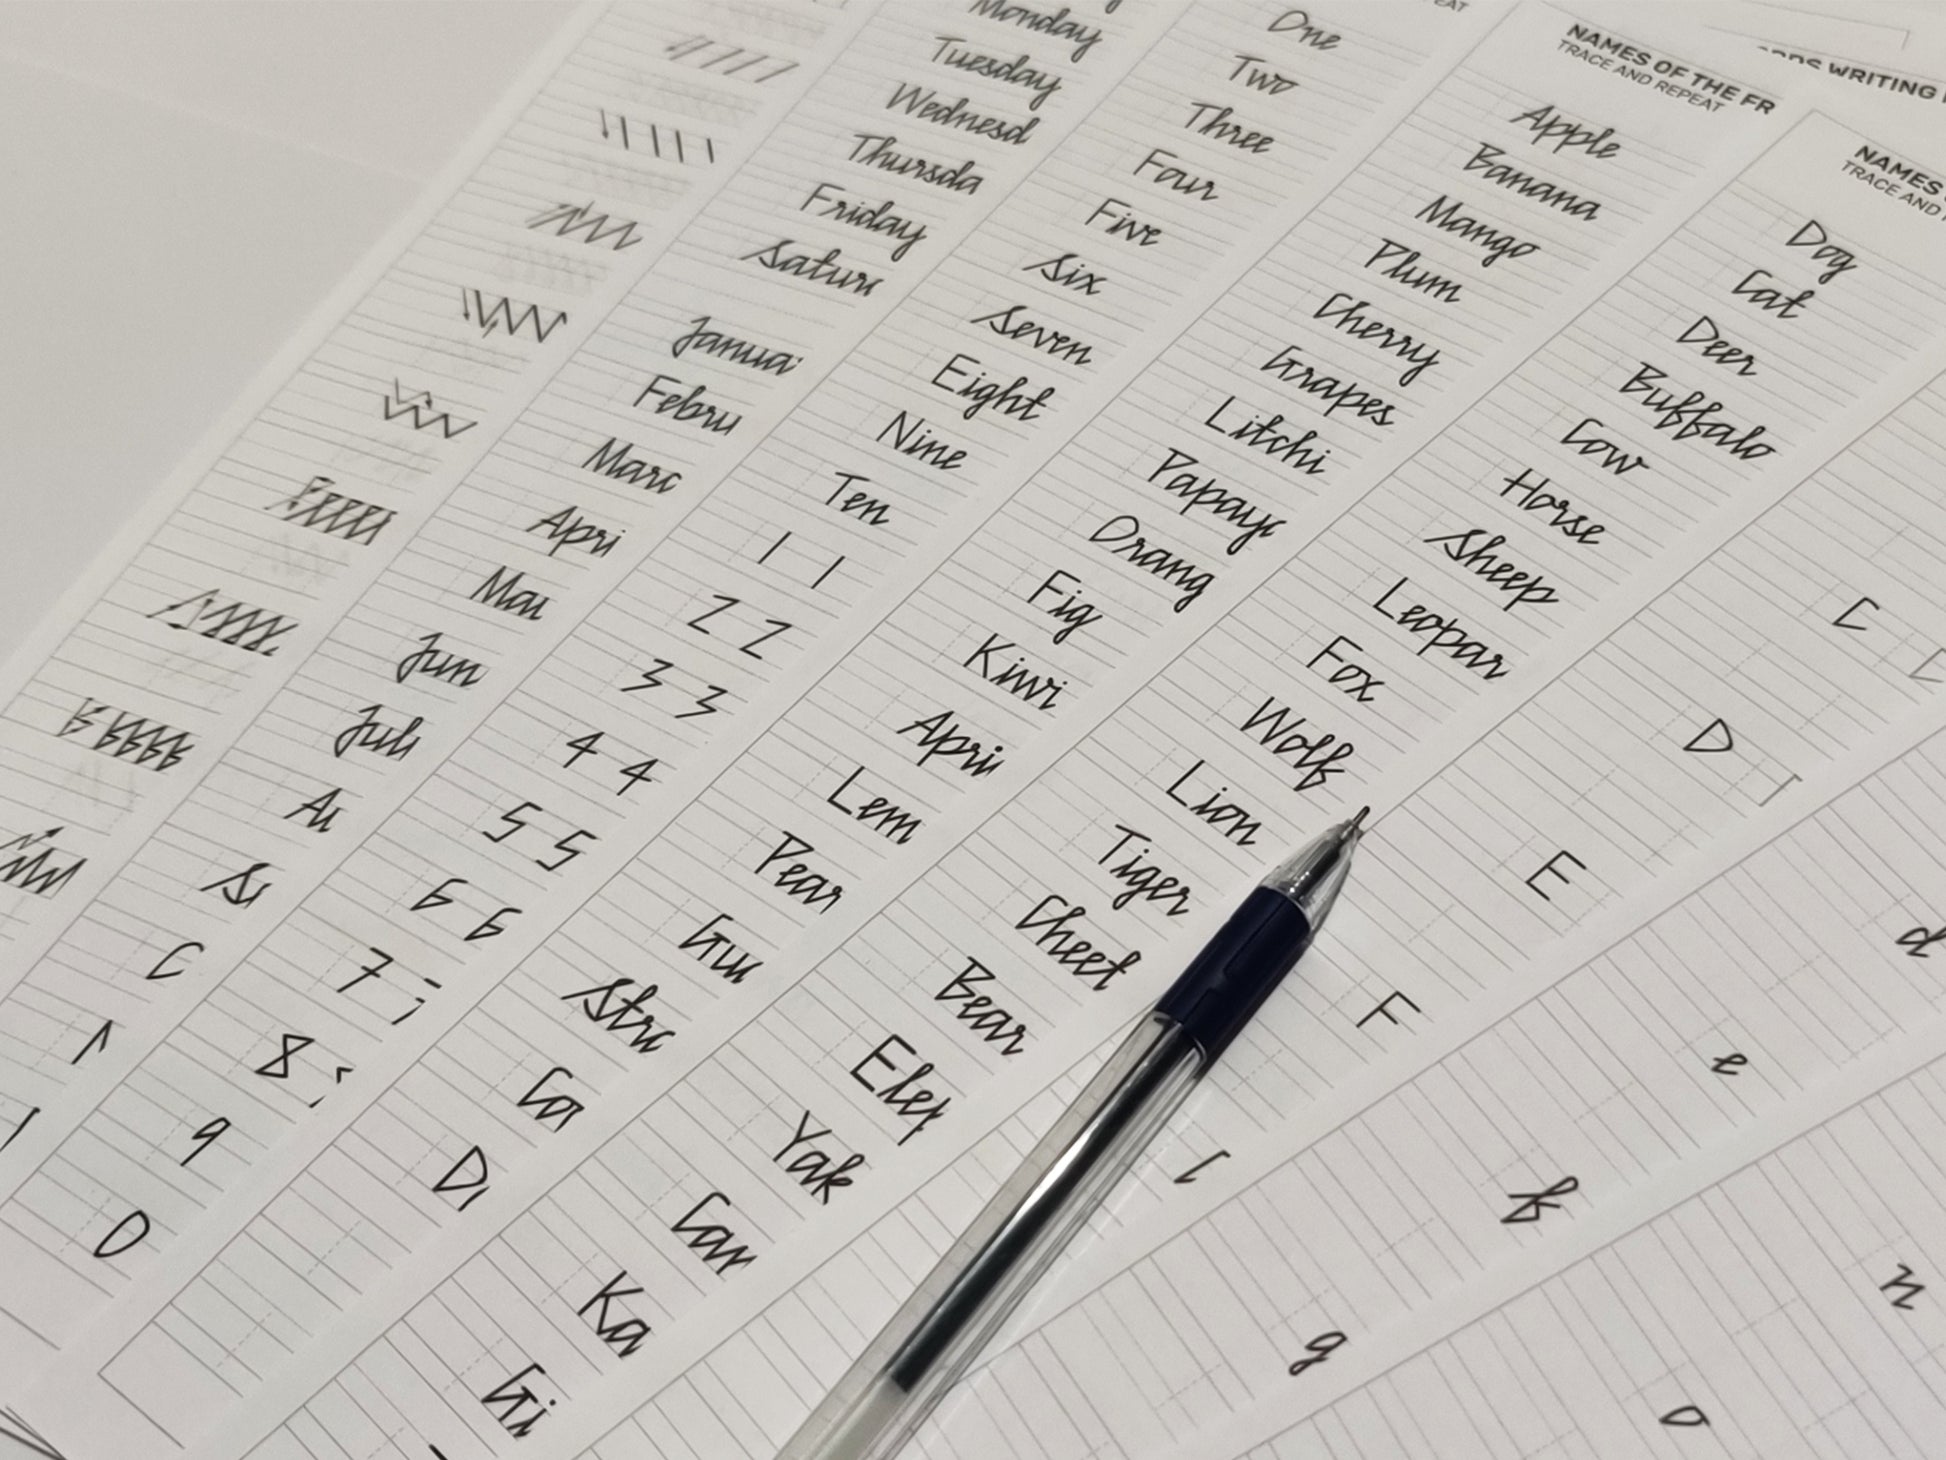 Monday
Tuesday
Wednesd
Thursda
Friday
Satur
Janua
Febru
Marc
Apri
Ma
Jun
Jul
Au
C
One
Two
Three
Four
Five
Six
Seven
Eight
Nine
Ten
1 1
2 2
3 3
4 4
5 5
6 6
7
8
9
0
NAMES OF THE FR
TRACE AND REPEAT
Apple
Banana
Mango
Plum
Cherry
Grapes
Litchi
Papay
Orang
Fig
Kiwi
Apri
Lem
Pear
Gu
Str
D
NAMES
TRACE AND
Dog
Cat
Deer
Buffalo
Cow
Horse
Sheep
Leopar
Fox
Wolf
Lion
Tiger
Cheet
Bear
Ele
Yak
Ka
Gi
WRITING
C
D
E
F
d
e
f
g
n
o